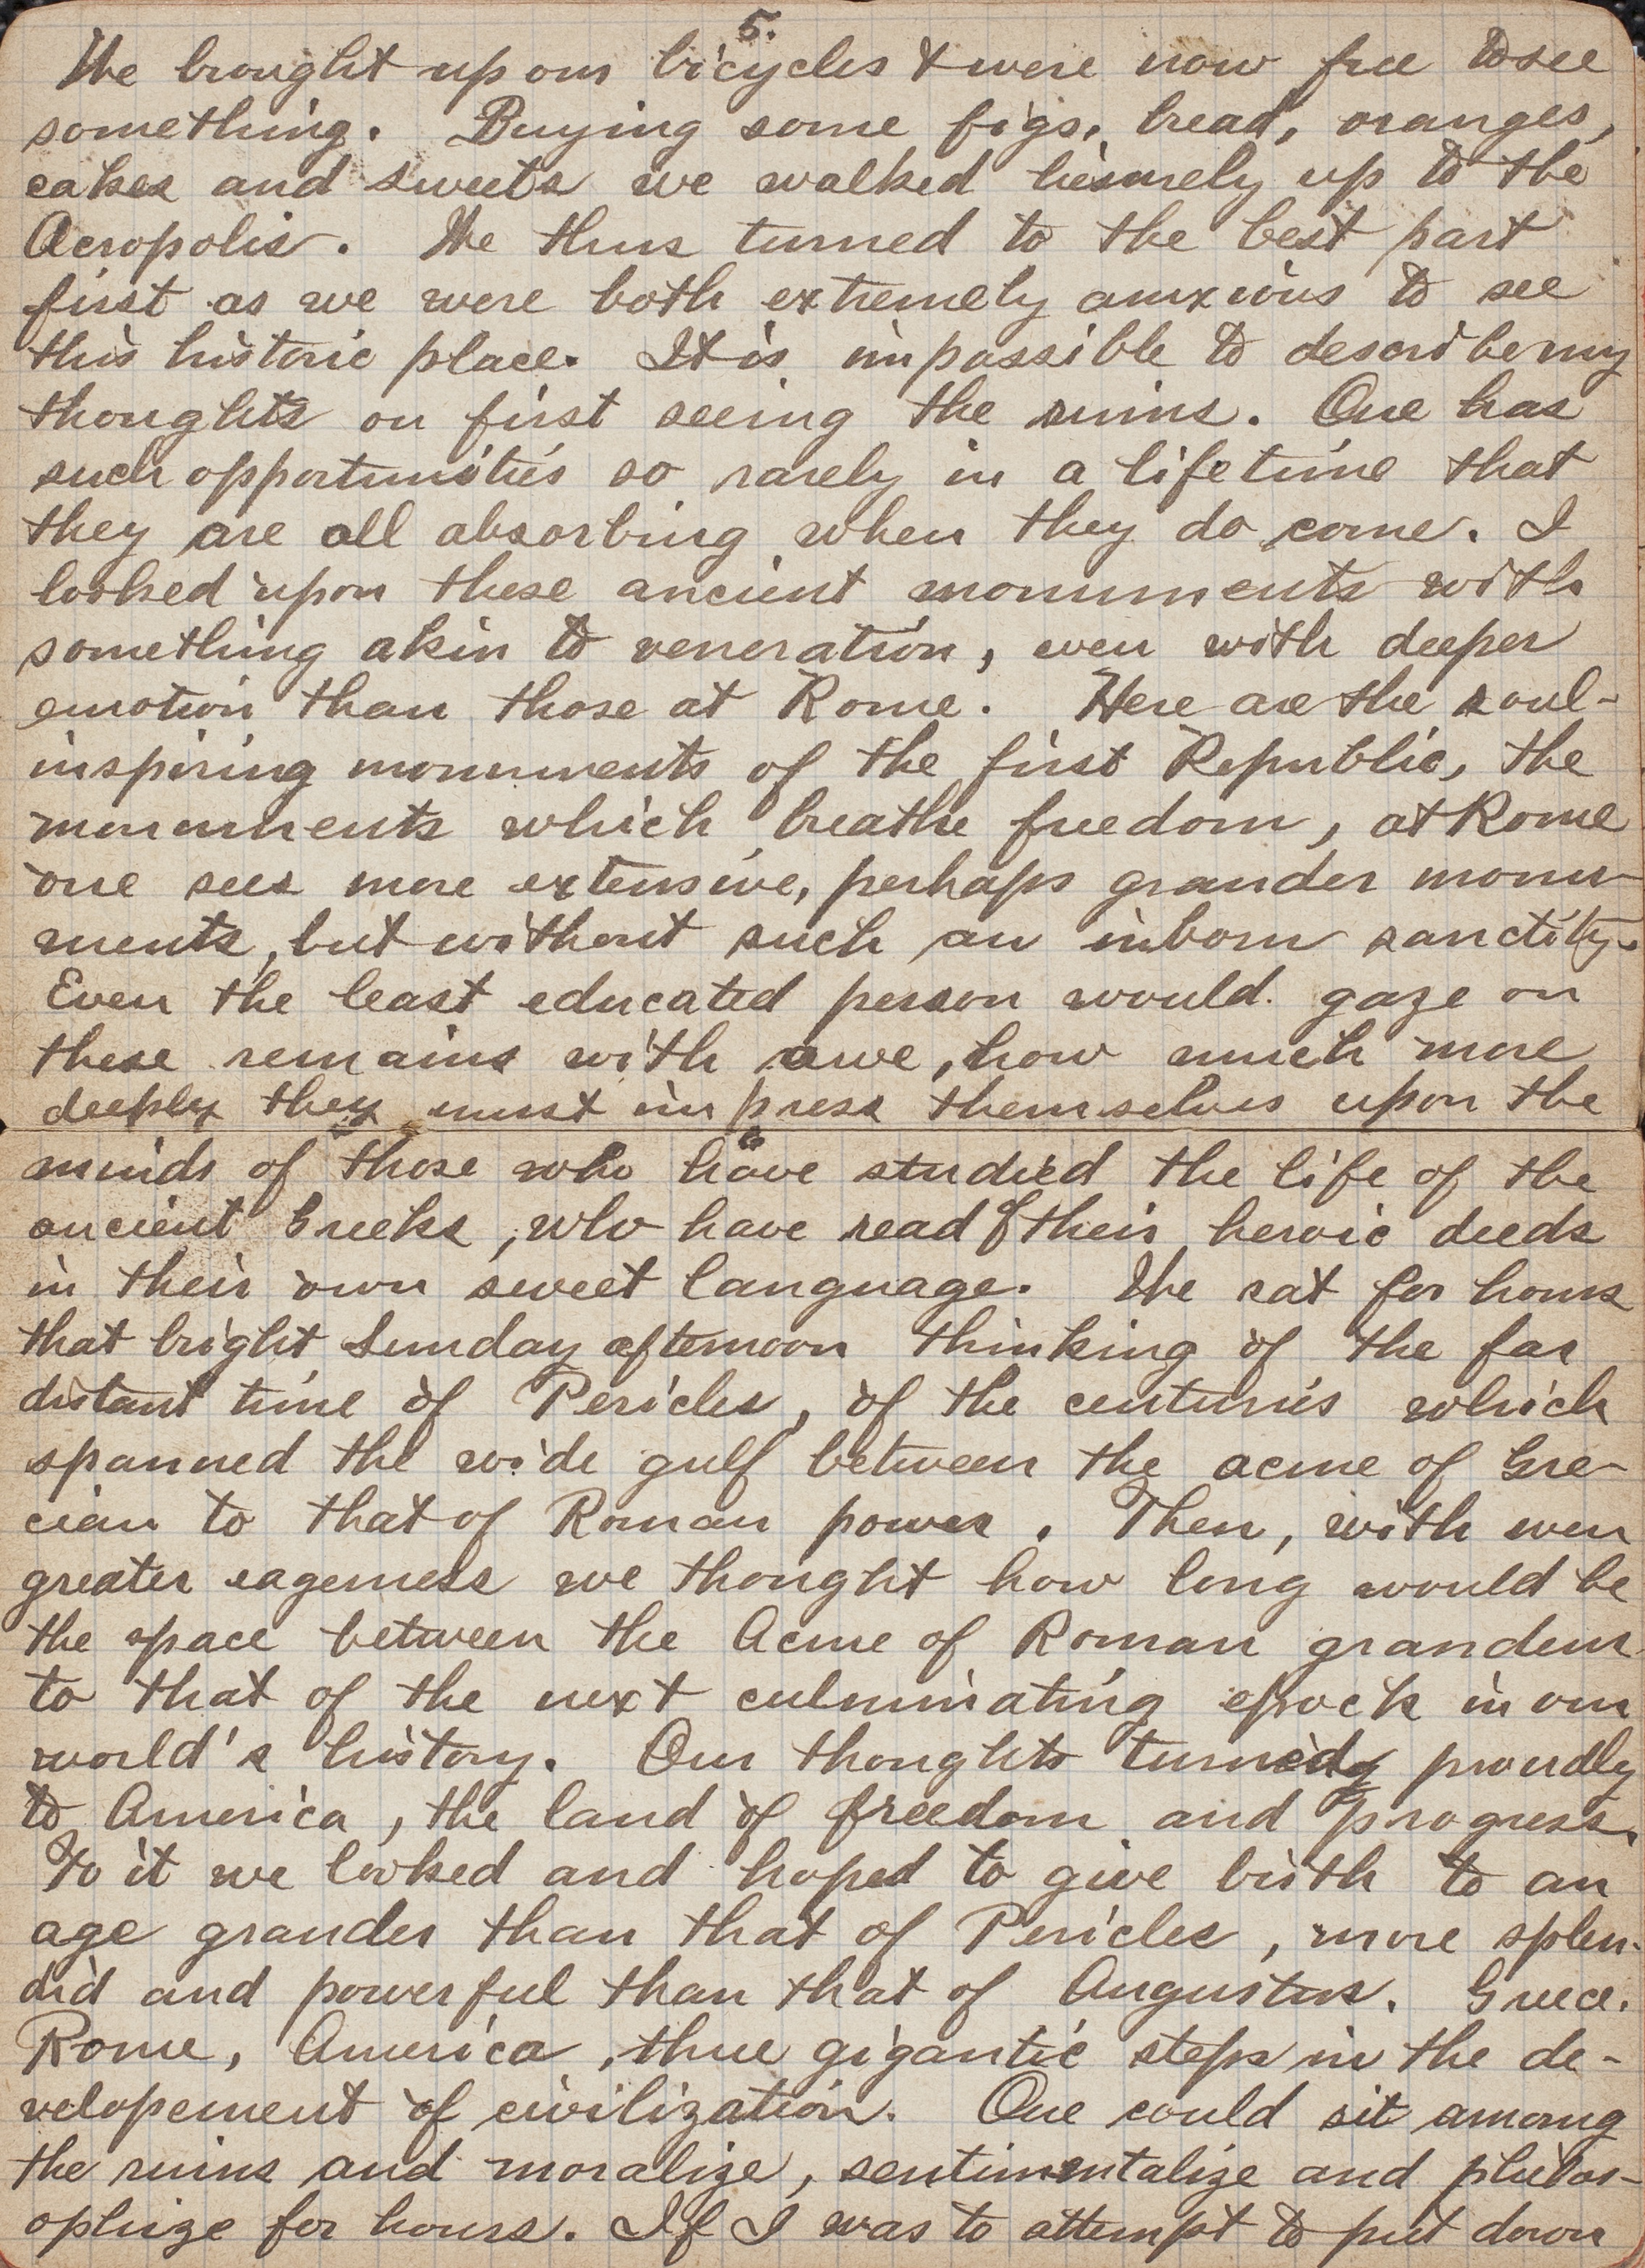 5.
We brought up our bicycles & were now free to see
something. Buying some figs, bread, oranges,
cakes and sweets we walked liesurely up to the
Acropolis. We thus turned to the best part
first as we were both extremely anxious to see
this historic place. It is impossible to describe my
thoughts on first seeing the ruins. One has
such opportunities so rarely in a lifetime that
they are all absorbing when they do come. I
looked upon these ancient monuments with
something akin to veneration, even with deeper
emotion than those at Rome. Here are the soul-
inspiring monuments of the first Republic, the
monuments which breathe freedom, at Rome
one sees more extensive, perhaps grander monu-
ments, but without such an inborn sanctity.
Even the least educated person would gaze on
these remains with awe, how much more
deeply they must impress themselves upon the
6
minds of those who have studied the life of the
ancient Greeks, who have read of their heroic deeds
in their own sweet language. We sat for hours
that bright Sunday afternoon thinking of the far
distant time of Pericles, of the centuries which
spanned the wide gulf between the acme of Gre-
cian to that of Roman power. Then, with even
greater eagerness we thought how long would be
the space between the Acme of Roman grandeur
to that of the next culminating epock in our
world's history. Our thoughts turned proudly
to America, the land of freedom and progress.
To it we looked and hoped to give birth to an
age grander than that of Pericles, more splen-
did and powerful than that of Augustus. Greece.
Rome, America, three gigantic steps in the de-
velopement of civilization. One could sit among
the ruins and moralize, sentimentalize and philos-
ophize for hours. If I was to attempt to put down